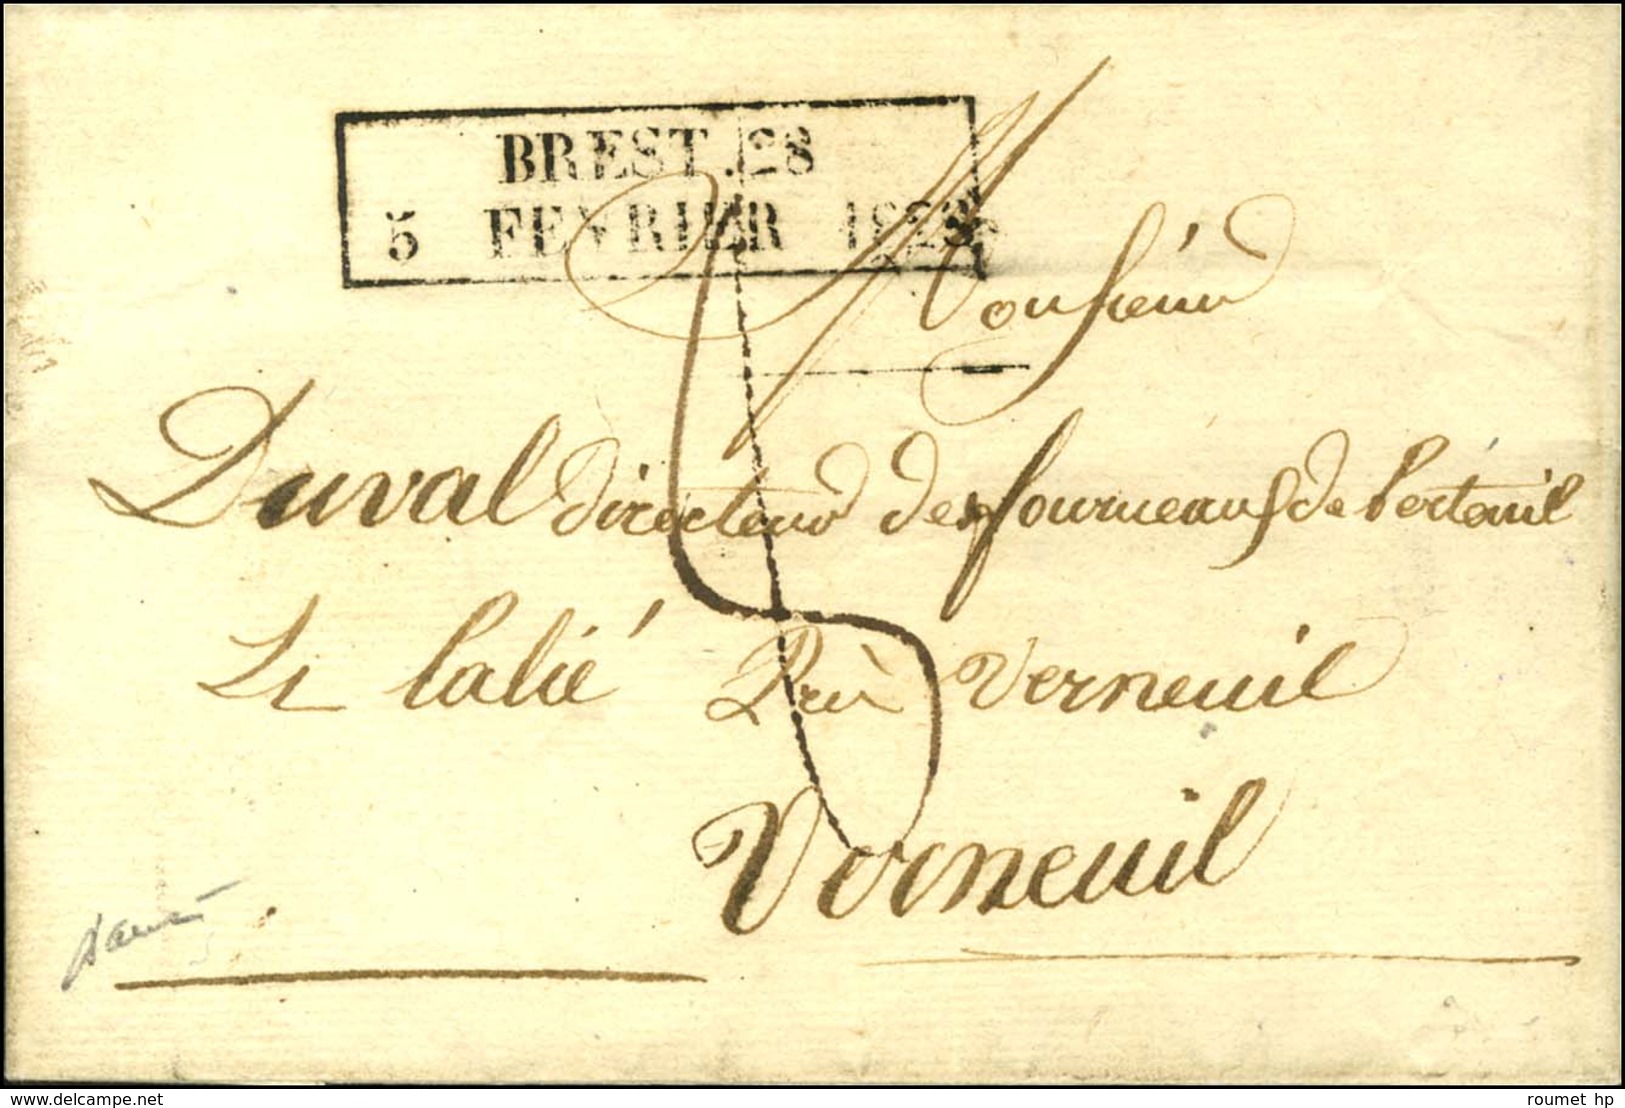 BREST. 28
5 FEVRIER 1828
Monsieur
Duval directeur des fourneaux de
Près Verneuil
Verneuil
delcampe.net
roumet hp